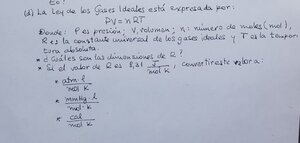 (d) La Ley de los Gases Ideales está expresada por:
PV = nRT
Donde: P es presión; V, volumen; n: número de moles (mol),
R es la constante universal de los gases ideales y T es la tempera
tura absoluta.
* ¿Cuáles son las dimensiones de R?
* Si el valor de R es 8,31 J/mol K, convertir este valor a:
* atm·l/mol·K
* mmHg·l/mol·K
* cal/mol K